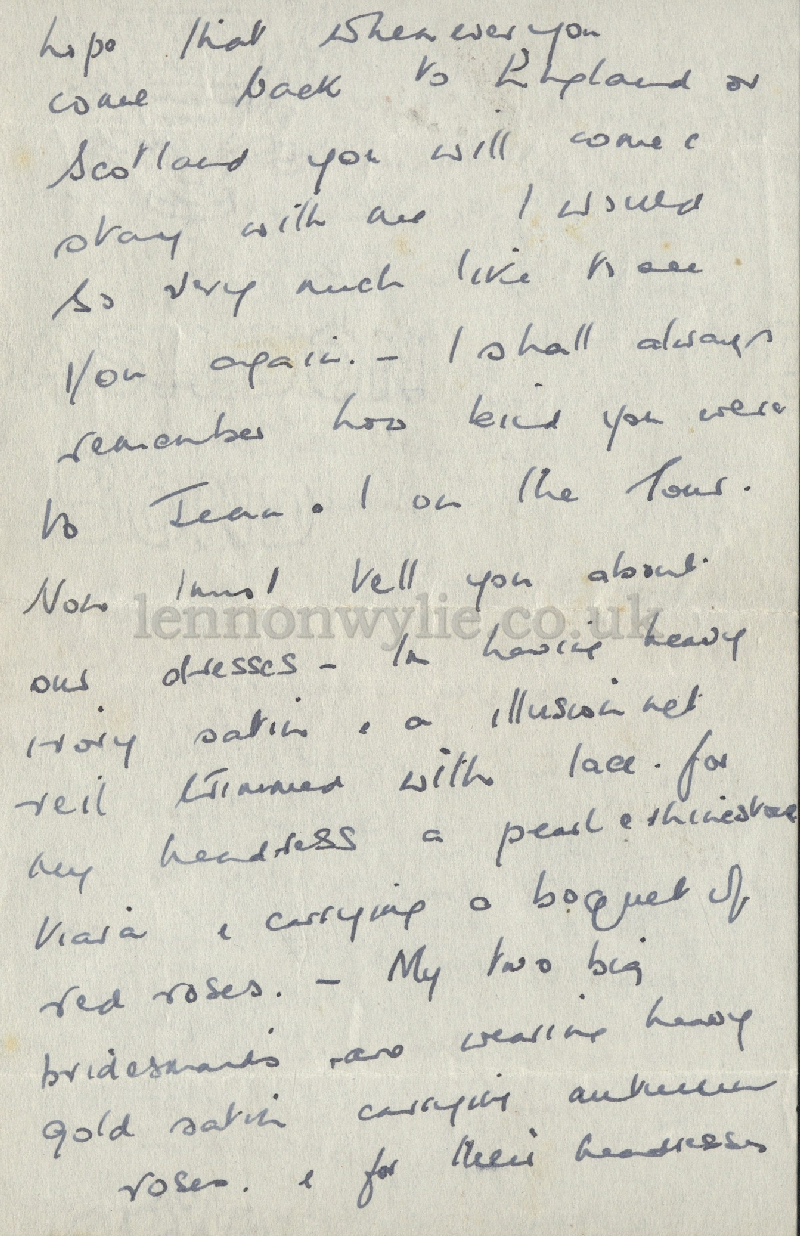 hope that whenever you
come back to England or
Scotland you will come &
stay with me I would
so very much like to see
you again. - I shall always
remember how kind you were
to Jean & I on the Tour.
Now I must tell you about
lennonwylie.co.uk
our dresses - Im having heavy
ivory satin & a illusion net
veil trimmed with lace. for
my headress a pearl & rhinestone
tiara & carrying a boquet of
red roses. - My two big
bridesmaids are wearing heavy
gold satin carrying autumn
roses. & for their headresses